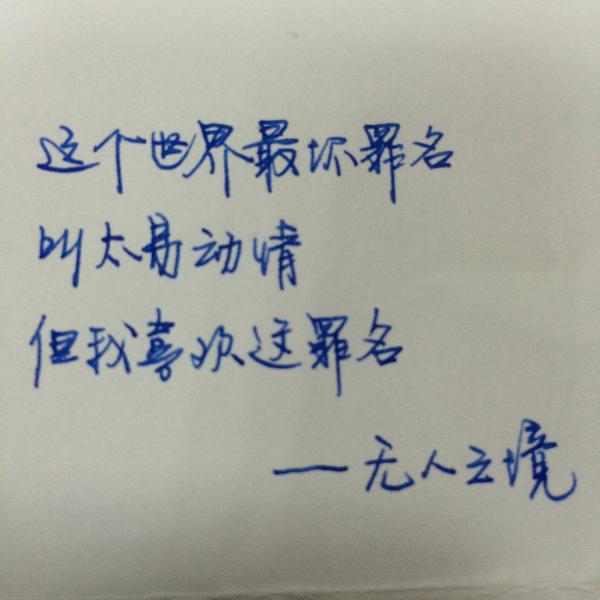 这个世界最坏罪名
叫太易动情
但我喜欢这罪名
——无人之境